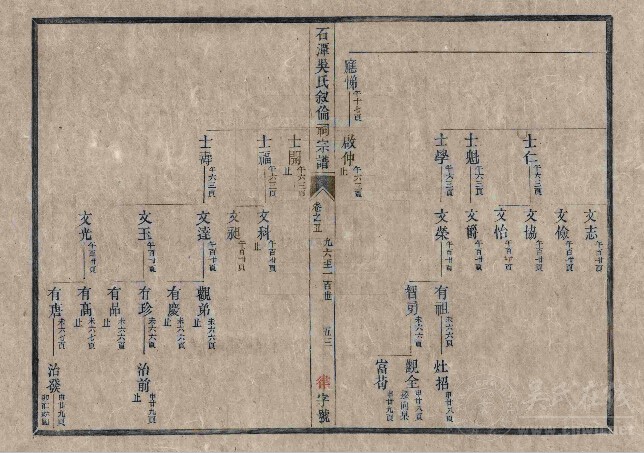 應悌
午十七頁
啟仲
止
士仁
午六三頁
士魁
午六三頁
士學
午六三頁
文志
午百廿頁
文儉
午百廿頁
文協
午百廿頁
文怡
午百廿頁
文爵
午百廿頁
文榮
午百廿頁
有祖
未六六頁
智勇
未六六頁
灶招
申廿八頁
觀全
申廿八頁
富荀
申廿九頁
石潭吳氏敘倫祠宗譜
卷之五
九六至一百世
五三
字號
士開
午六三頁
止
士福
午六三頁
士禱
午六三頁
文科
午百廿頁
止
文昶
午百廿頁
文達
午百廿頁
文玉
午百廿頁
文光
午百廿頁
觀弟
未六六頁
止
有慶
未六六頁
止
有珍
未六六頁
有品
未六六頁
止
有高
未六七頁
止
有唐
未六七頁
治前
申廿九頁
止
治發
申廿九頁